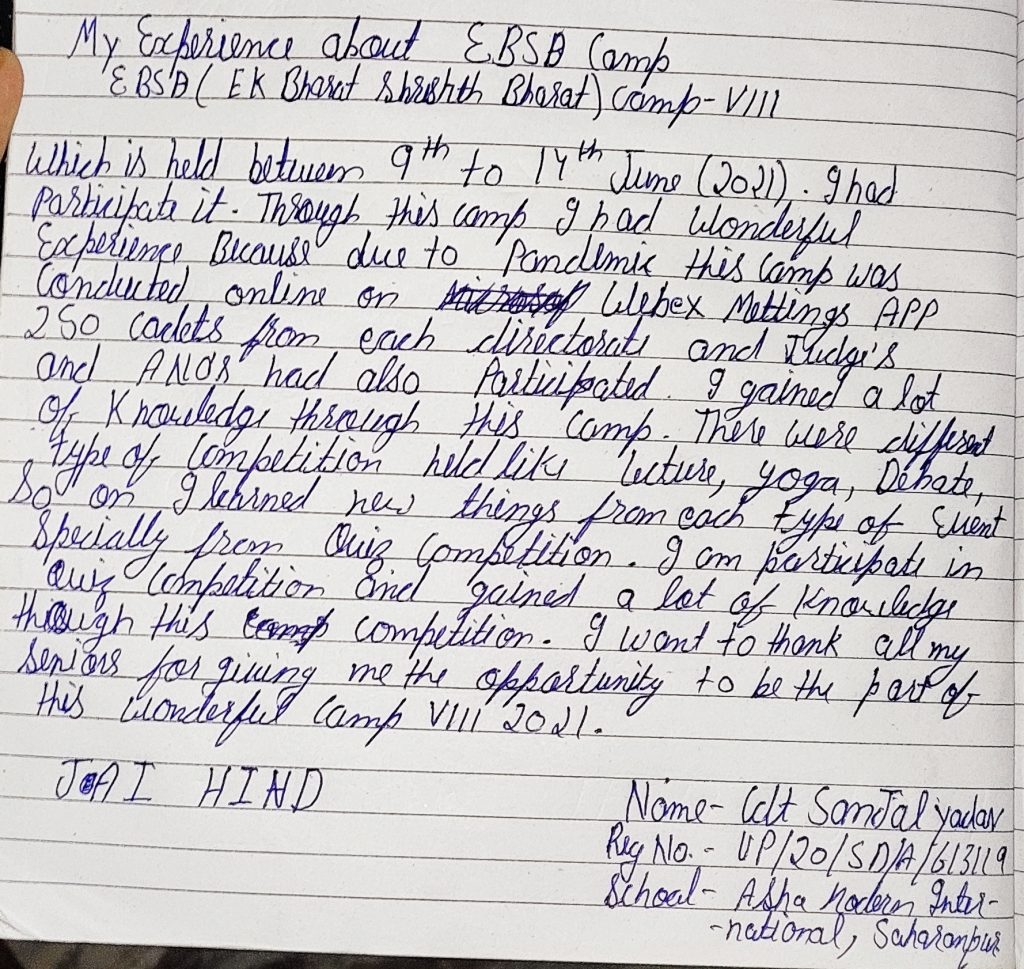 My Experience about EBSB Camp
EBSB ( EK Bharat Shrishth Bharat) camp-VIII
Which is held between 9th to 14th June (2021). I had
participate it. Through this camp I had wonderful
Experience Because due to Pandemic this camp was
Conducted online on Webex Mettings APP
250 cadets from each directorate and Judge's
and ANO's had also Participated. I gained a lot
of Knowledge through this camp. There were different
type of Competition held like lecture, yoga, Debate,
So on I learned new things from each type of Event
Specially from Quiz Competition. I am participate in
Quiz Competition and gained a lot of Knowledge
through this competition. I want to thank all my
seniors for giving me the opportunity to be the part of
this wonderful camp VIII 2021.
JAI HIND
Name- Cdt Sanjal yadav
Reg No. - UP/20/SD/A/613119
School- Asha Modern Inter-
-national, Saharanpur